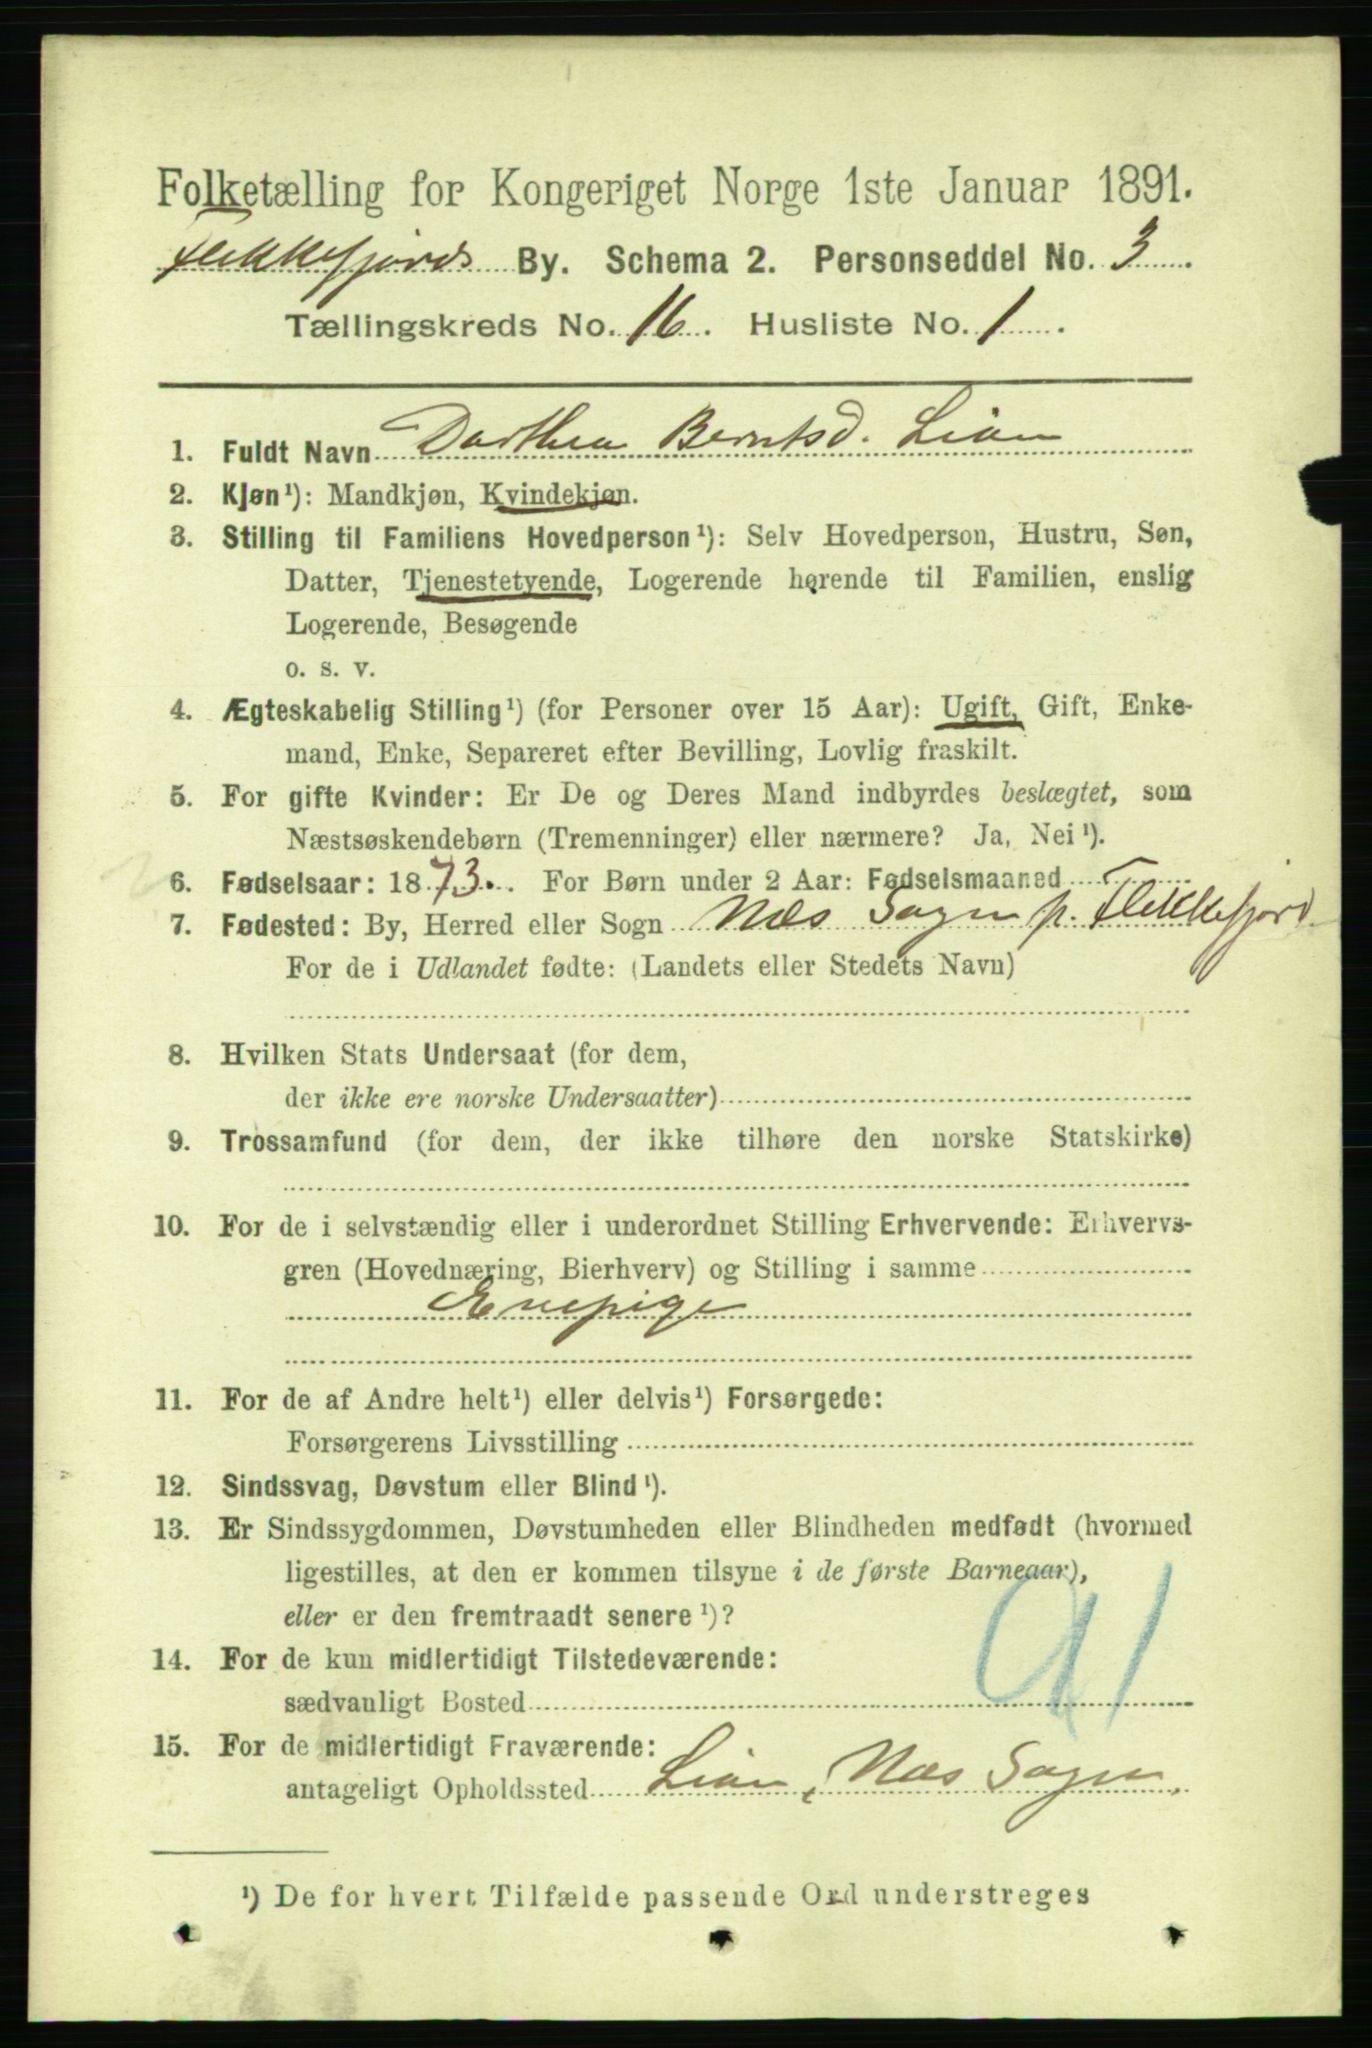 Folketælling for Kongeriget Norge 1ste Januar 1891.
Flekkefjords By. Schema 2. Personseddel No. 3
Tællingskreds No. 16. Husliste No. 1
1. Fuldt Navn Dorthea Berntsd. Lian
2. Kjøn¹): Mandkjøn, Kvindekjøn.
3. Stilling til Familiens Hovedperson¹): Selv Hovedperson, Hustru, Søn,
Datter, Tjenestetyende, Logerende hørende til Familien, enslig
Logerende, Besøgende
o. s. v.
4. Ægteskabelig Stilling¹) (for Personer over 15 Aar): Ugift, Gift, Enke-
mand, Enke, Separeret efter Bevilling, Lovlig fraskilt.
5. For gifte Kvinder: Er De og Deres Mand indbyrdes beslægtet, som
Næstsøskendebørn (Tremenninger) eller nærmere? Ja, Nei¹).
6. Fødselsaar: 1873. For Børn under 2 Aar: Fødselsmaaned
7. Fødested: By, Herred eller Sogn Næs Sogn p. Flekkefjord
For de i Udlandet fødte: (Landets eller Stedets Navn)
8. Hvilken Stats Undersaat (for dem,
der ikke ere norske Undersaatter)
9. Trossamfund (for dem, der ikke tilhøre den norske Statskirke)
10. For de i selvstændig eller i underordnet Stilling Erhvervende: Erhvervs-
gren (Hovednæring, Bierhverv) og Stilling i samme
Enepige
11. For de af Andre helt¹) eller delvis¹) Forsørgede:
Forsørgerens Livsstilling
12. Sindssvag, Døvstum eller Blind¹).
13. Er Sindssygdommen, Døvstumheden eller Blindheden medfødt (hvormed
ligestilles, at den er kommen tilsyne i de første Barneaar),
eller er den fremtraadt senere¹)?
91
14. For de kun midlertidigt Tilstedeværende:
sædvanligt Bosted
15. For de midlertidigt Fraværende:
antageligt Opholdssted Lian, Næs Sogn.
¹) De for hvert Tilfælde passende Ord understreges